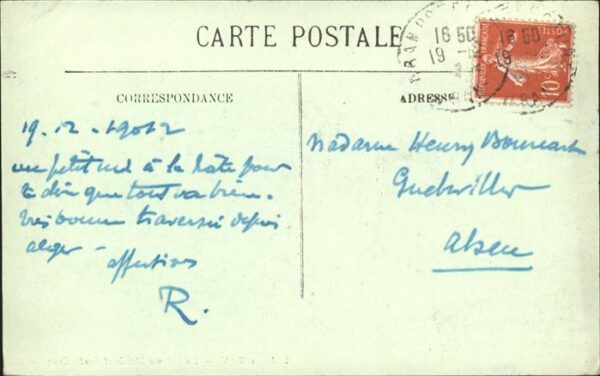 CARTE POSTALE
CORRESPONDANCE
ADRESSE
19-12-1912
un petit mot à la hâte pour
te dire que tout va bien.
très bonne traversée depuis
alger -
affections
R.
Madame Henry Bourcart
Guebwiller
Alsace
16 50
19
16 50
19
ORAN
POSTES
10